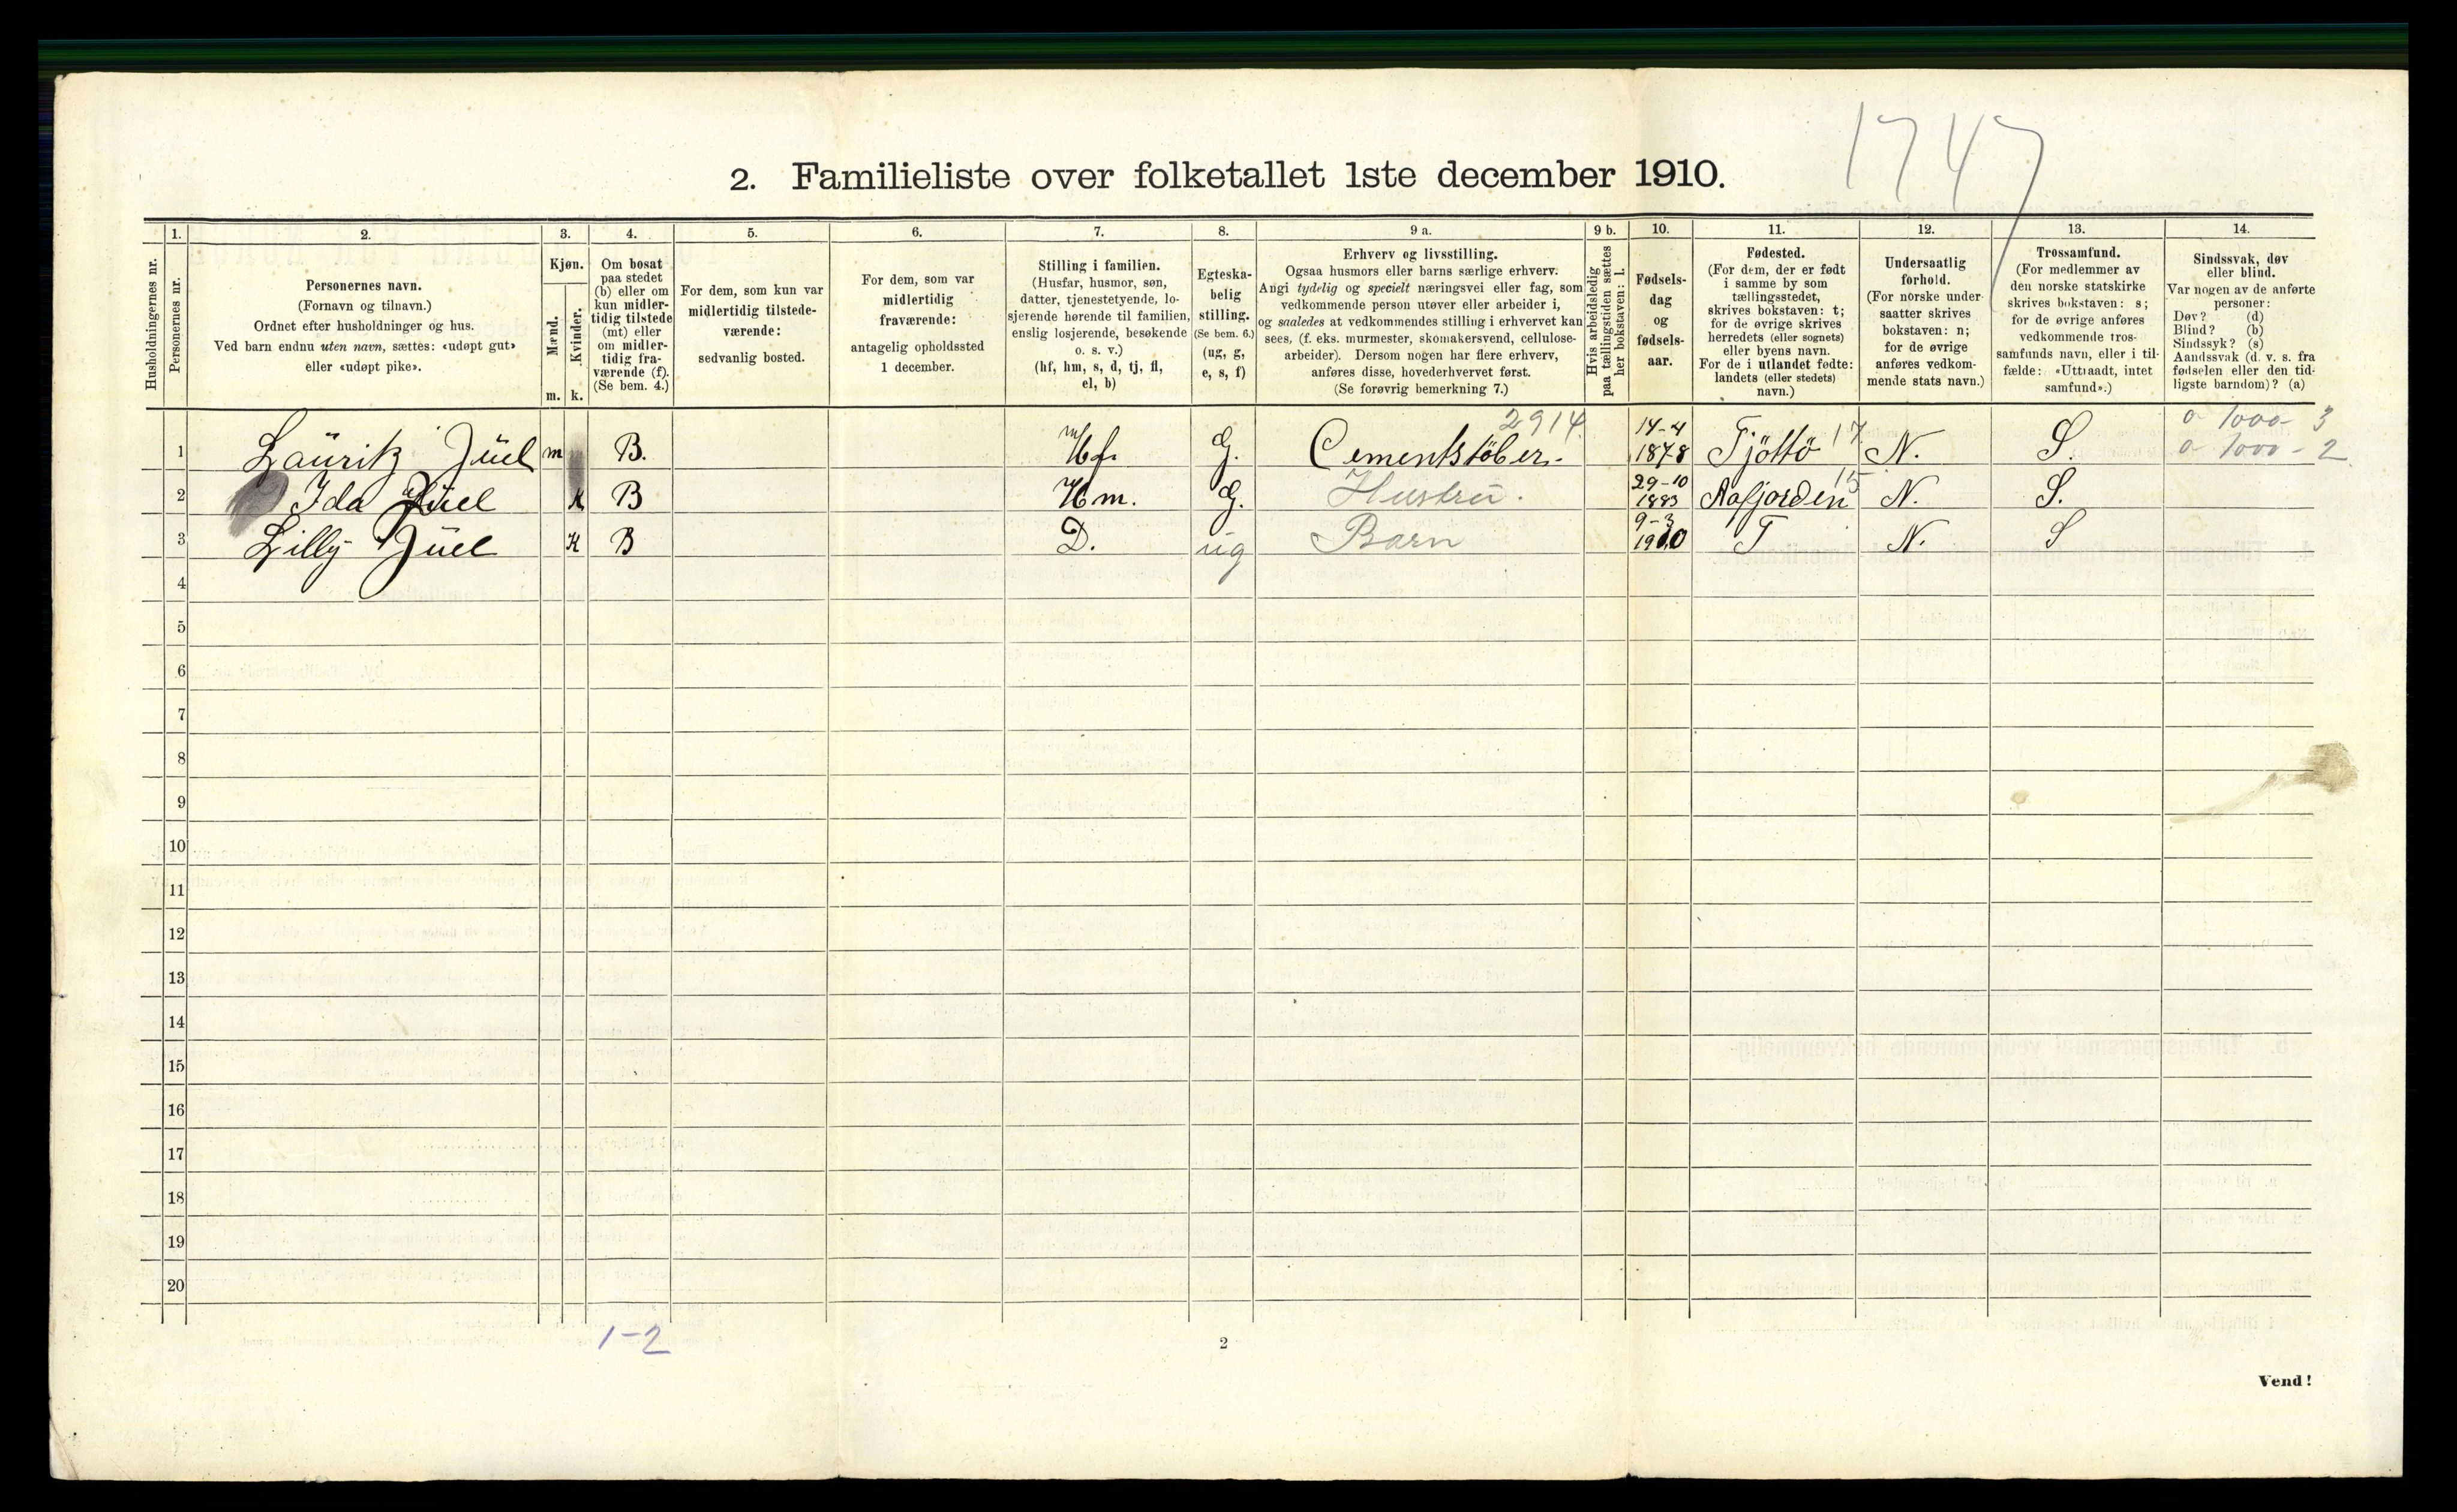 1747
2. Familieliste over folketallet 1ste december 1910.
1. 2. 3. 4. 5. 6. 7. 8. 9 a. 9 b. 10. 11. 12. 13. 14.
Husholdningernes nr.
Personernes nr.
Personernes navn.
(Fornavn og tilnavn.)
Ordnet efter husholdninger og hus.
Ved barn endnu uten navn, sættes: «udøpt gut»
eller «udøpt pike».
Kjøn.
Mænd.
Kvinder.
m. k.
Om bosat
paa stedet
(b) eller om
kun midler-
tidig tilstede
(mt) eller
om midler-
tidig fra-
værende (f).
(Se bem. 4.)
For dem, som kun var
midlertidig tilstede-
værende:
sedvanlig bosted.
For dem, som var
midlertidig
fraværende:
antagelig opholdssted
1 december.
Stilling i familien.
(Husfar, husmor, søn,
datter, tjenestetyende, lo-
sjerende hørende til familien,
enslig losjerende, besøkende
o. s. v.)
(hf, hm, s, d, tj, fl,
el, b)
Egteska-
belig
stilling.
(Se bem. 6.)
(ug, g,
e, s, f)
Erhverv og livsstilling.
Ogsaa husmors eller barns særlige erhverv.
Angi tydelig og specielt næringsvei eller fag, som
vedkommende person utøver eller arbeider i,
og saaledes at vedkommendes stilling i erhvervet kan
sees, (f. eks. murmester, skomakersvend, cellulose-
arbeider). Dersom nogen har flere erhverv,
anføres disse, hovederhvervet først.
(Se forøvrig bemerkning 7.)
Hvis arbeidsledig
paa tællingstiden sættes
her bokstaven: l.
Fødsels-
dag
og
fødsels-
aar.
Fødested.
(For dem, der er født
i samme by som
tællingsstedet,
skrives bokstaven: t;
for de øvrige skrives
herredets (eller sognets)
eller byens navn.
For de i utlandet fødte:
landets (eller stedets)
navn.)
Undersaatlig
forhold.
(For norske under-
saatter skrives
bokstaven: n;
for de øvrige
anføres vedkom-
mende stats navn.)
Trossamfund.
(For medlemmer av
den norske statskirke
skrives bokstaven: s;
for de øvrige anføres
vedkommende tros-
samfunds navn, eller i til-
fælde: «Uttraadt, intet
samfund».)
Sindssvak, døv
eller blind.
Var nogen av de anførte
personer:
Døv? (d)
Blind? (b)
Sindssyk? (s)
Aandssvak (d. v. s. fra
fødselen eller den tid-
ligste barndom)? (a)
2914 14-4 17 o 1000- 3
1 Lauritz Juel m B. Hf. G. Cementstöber. 1878 Tjöttö N. S. o 1000 - 2
29-10 15
2 Ida Juel K B Hm. G. Hustru. 1883 Aafjorden N. S.
9-3
3 Lilly Juel K B D. ug Barn 1910 T N. S
4
5
6
7
8
9
10
11
12
13
14
15
16
17
18
19
20
1-2
2
Vend!